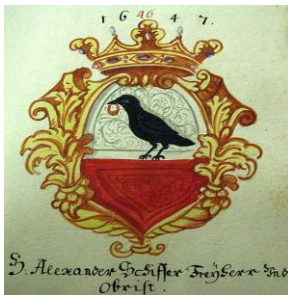 1 6 46 4 7.
H. Alexander Schiffer Freÿherr Vnd
Obrist.